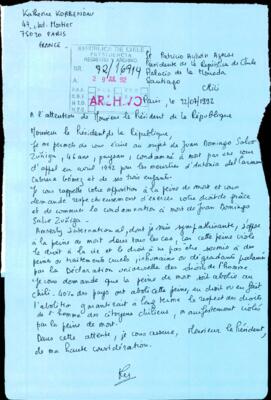 Katherine KORBENDAU
49, bd. Mortier
75020 PARIS
FRANCE.
REPUBLICA DE CHILE
PRESIDENCIA
REGISTRO Y ARCHIVO
NR. 92/16914
A 29 JUL 92
ARCHIVO
Sr Patricio Aylwin Azócar
Presidente de la República de Chile
Palacio de la Moneda
Santiago
Chili
Paris, le 22/07/1992
A l'attention de Monsieur le Président de la République
Monsieur le Président de la République,
Je me permets de vous écrire au sujet de Juan Domingo Salvo
Zúñiga, 46 ans, paysan, condamné à mort par une cour
d'appel en avril 1992 pour les meurtres d'Antonia del Carmen
Cabrera Gómez et de ses trois enfants.
Je vous rappelle votre opposition à la peine de mort et vous
demande respectueusement d'exercer votre droit de grâce
et de commuer la condamnation à mort de Juan Domingo
Salvo Zúñiga.
Amnesty International, dont je suis sympathisante, s'oppose
à la peine de mort dans tous les cas, car cette peine viole
le droit à la vie et le droit à ne pas être soumis à des
peines ou traitements cruels, inhumains ou dégradants
par la Déclaration universelle des droits de l'homme.
Je vous demande que la peine de mort soit abolie au
Chili. 40% des pays ont aboli cette peine, en droit ou en fait
l'abolition garantirait à long terme le respect des droits
de l'homme des citoyens chiliens, manifestement violés
par la peine de mort.
Dans cette attente, je vous assure, Monsieur le Président,
de ma haute considération.